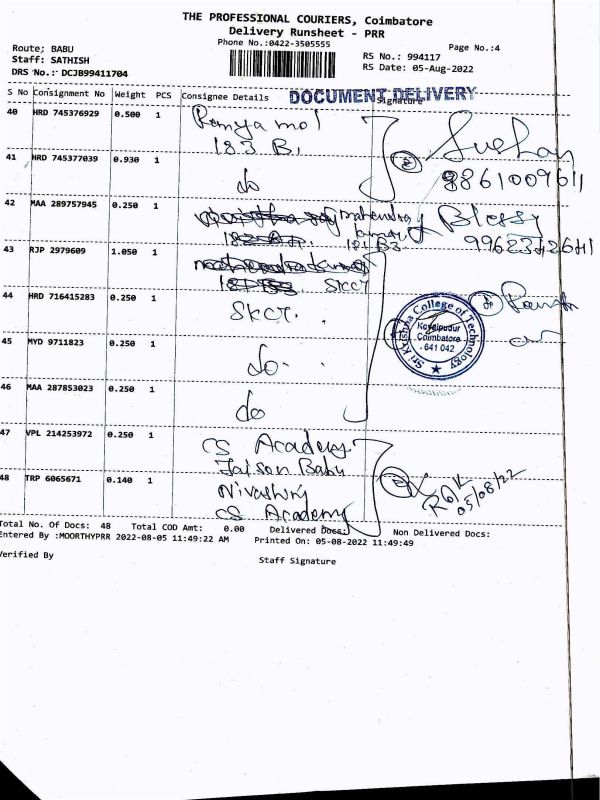 THE PROFESSIONAL COURIERS, Coimbatore
Delivery Runsheet - PRR
Phone No.:0422-3505555
Page No.:4
Route; BABU
Staff: SATHISH
DRS No.: DCJB99411704
RS No.: 994117
RS Date: 05-Aug-2022
S No Consignment No Weight PCS Consignee Details Signature
DOCUMENT DELIVERY
40 HRD 745376929 0.500 1 Ramya mol
183 B1
41 HRD 745377039 0.930 1 do
2
8861009611
42 MAA 289757945 0.250 1 Mahendra
181 B3
Blessy
9962342641
43 RJP 2979609 1.050 1
SKCT
44 HRD 716415283 0.250 1 SKCT.
Sri Krishna College of Technology
Kovaipudur
Coimbatore
641 042
45 MYD 9711823 0.250 1 do
46 MAA 287853023 0.250 1 do
47 VPL 214253972 0.250 1 CS Academy
Jaison Babu
48 TRP 6065671 0.140 1 Nivashini
CS Academy
05/08/22
Total No. Of Docs: 48 Total COD Amt: 0.00 Delivered Docs: Non Delivered Docs:
Entered By :MOORTHYPRR 2022-08-05 11:49:22 AM Printed On: 05-08-2022 11:49:49
Verified By
Staff Signature